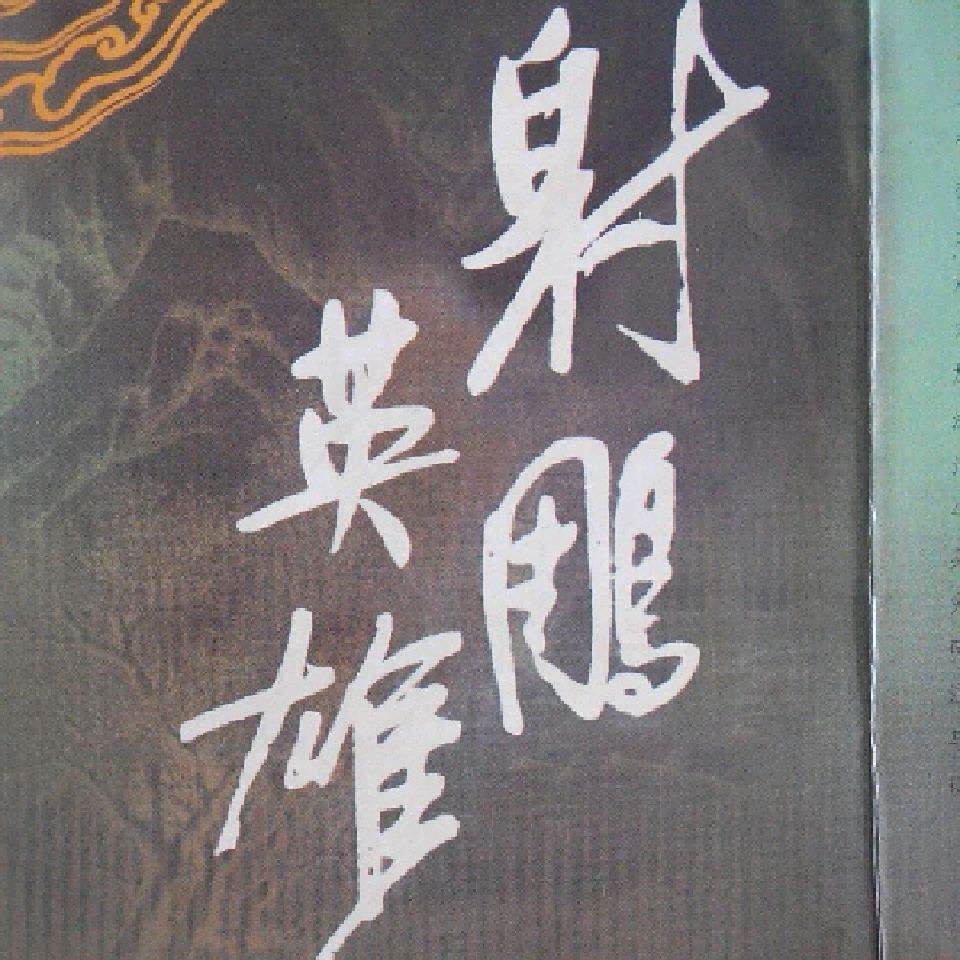 射鵰
英雄